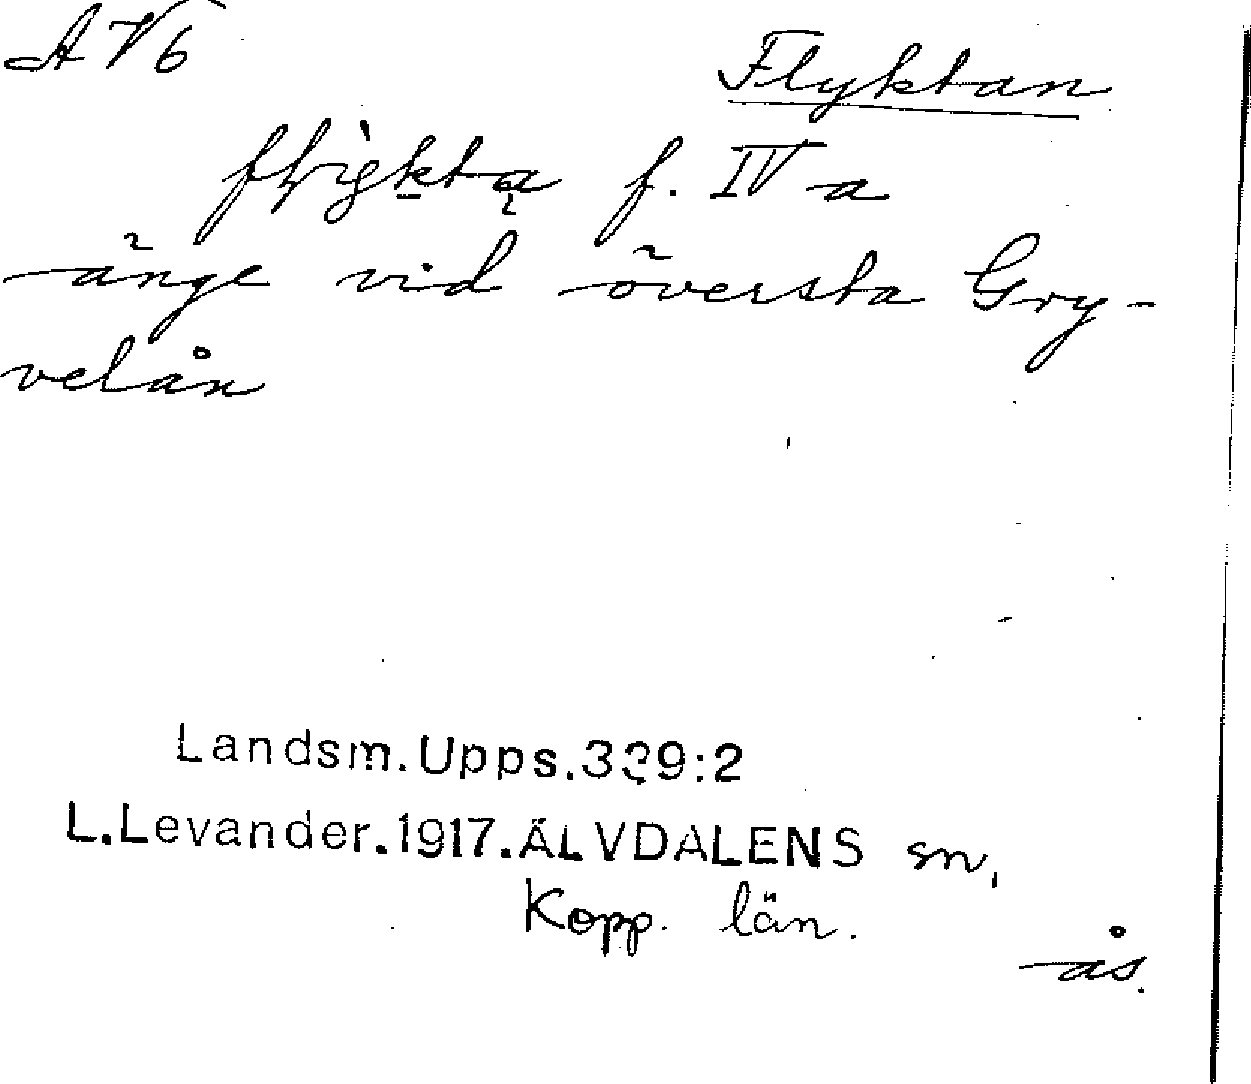 AV6
Flyktan
flyikta f. IV a
änge vid översta Gry-
velån
Landsm.Upps.339:2
L.Levander.1917.ÄLVDALENS sn,
Kopp. län.
ås.